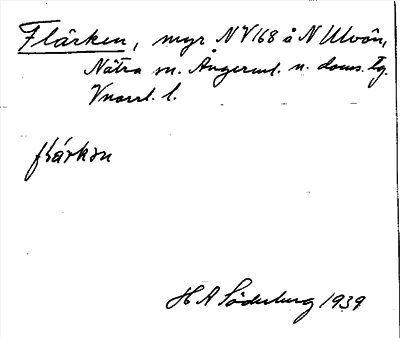 Flärken, myr NV168 å N Ulvön,
Nätra sn. Ångerml. n. doms. tg.
Vnorrl. l.
flárkən
H A Söderburg 1939